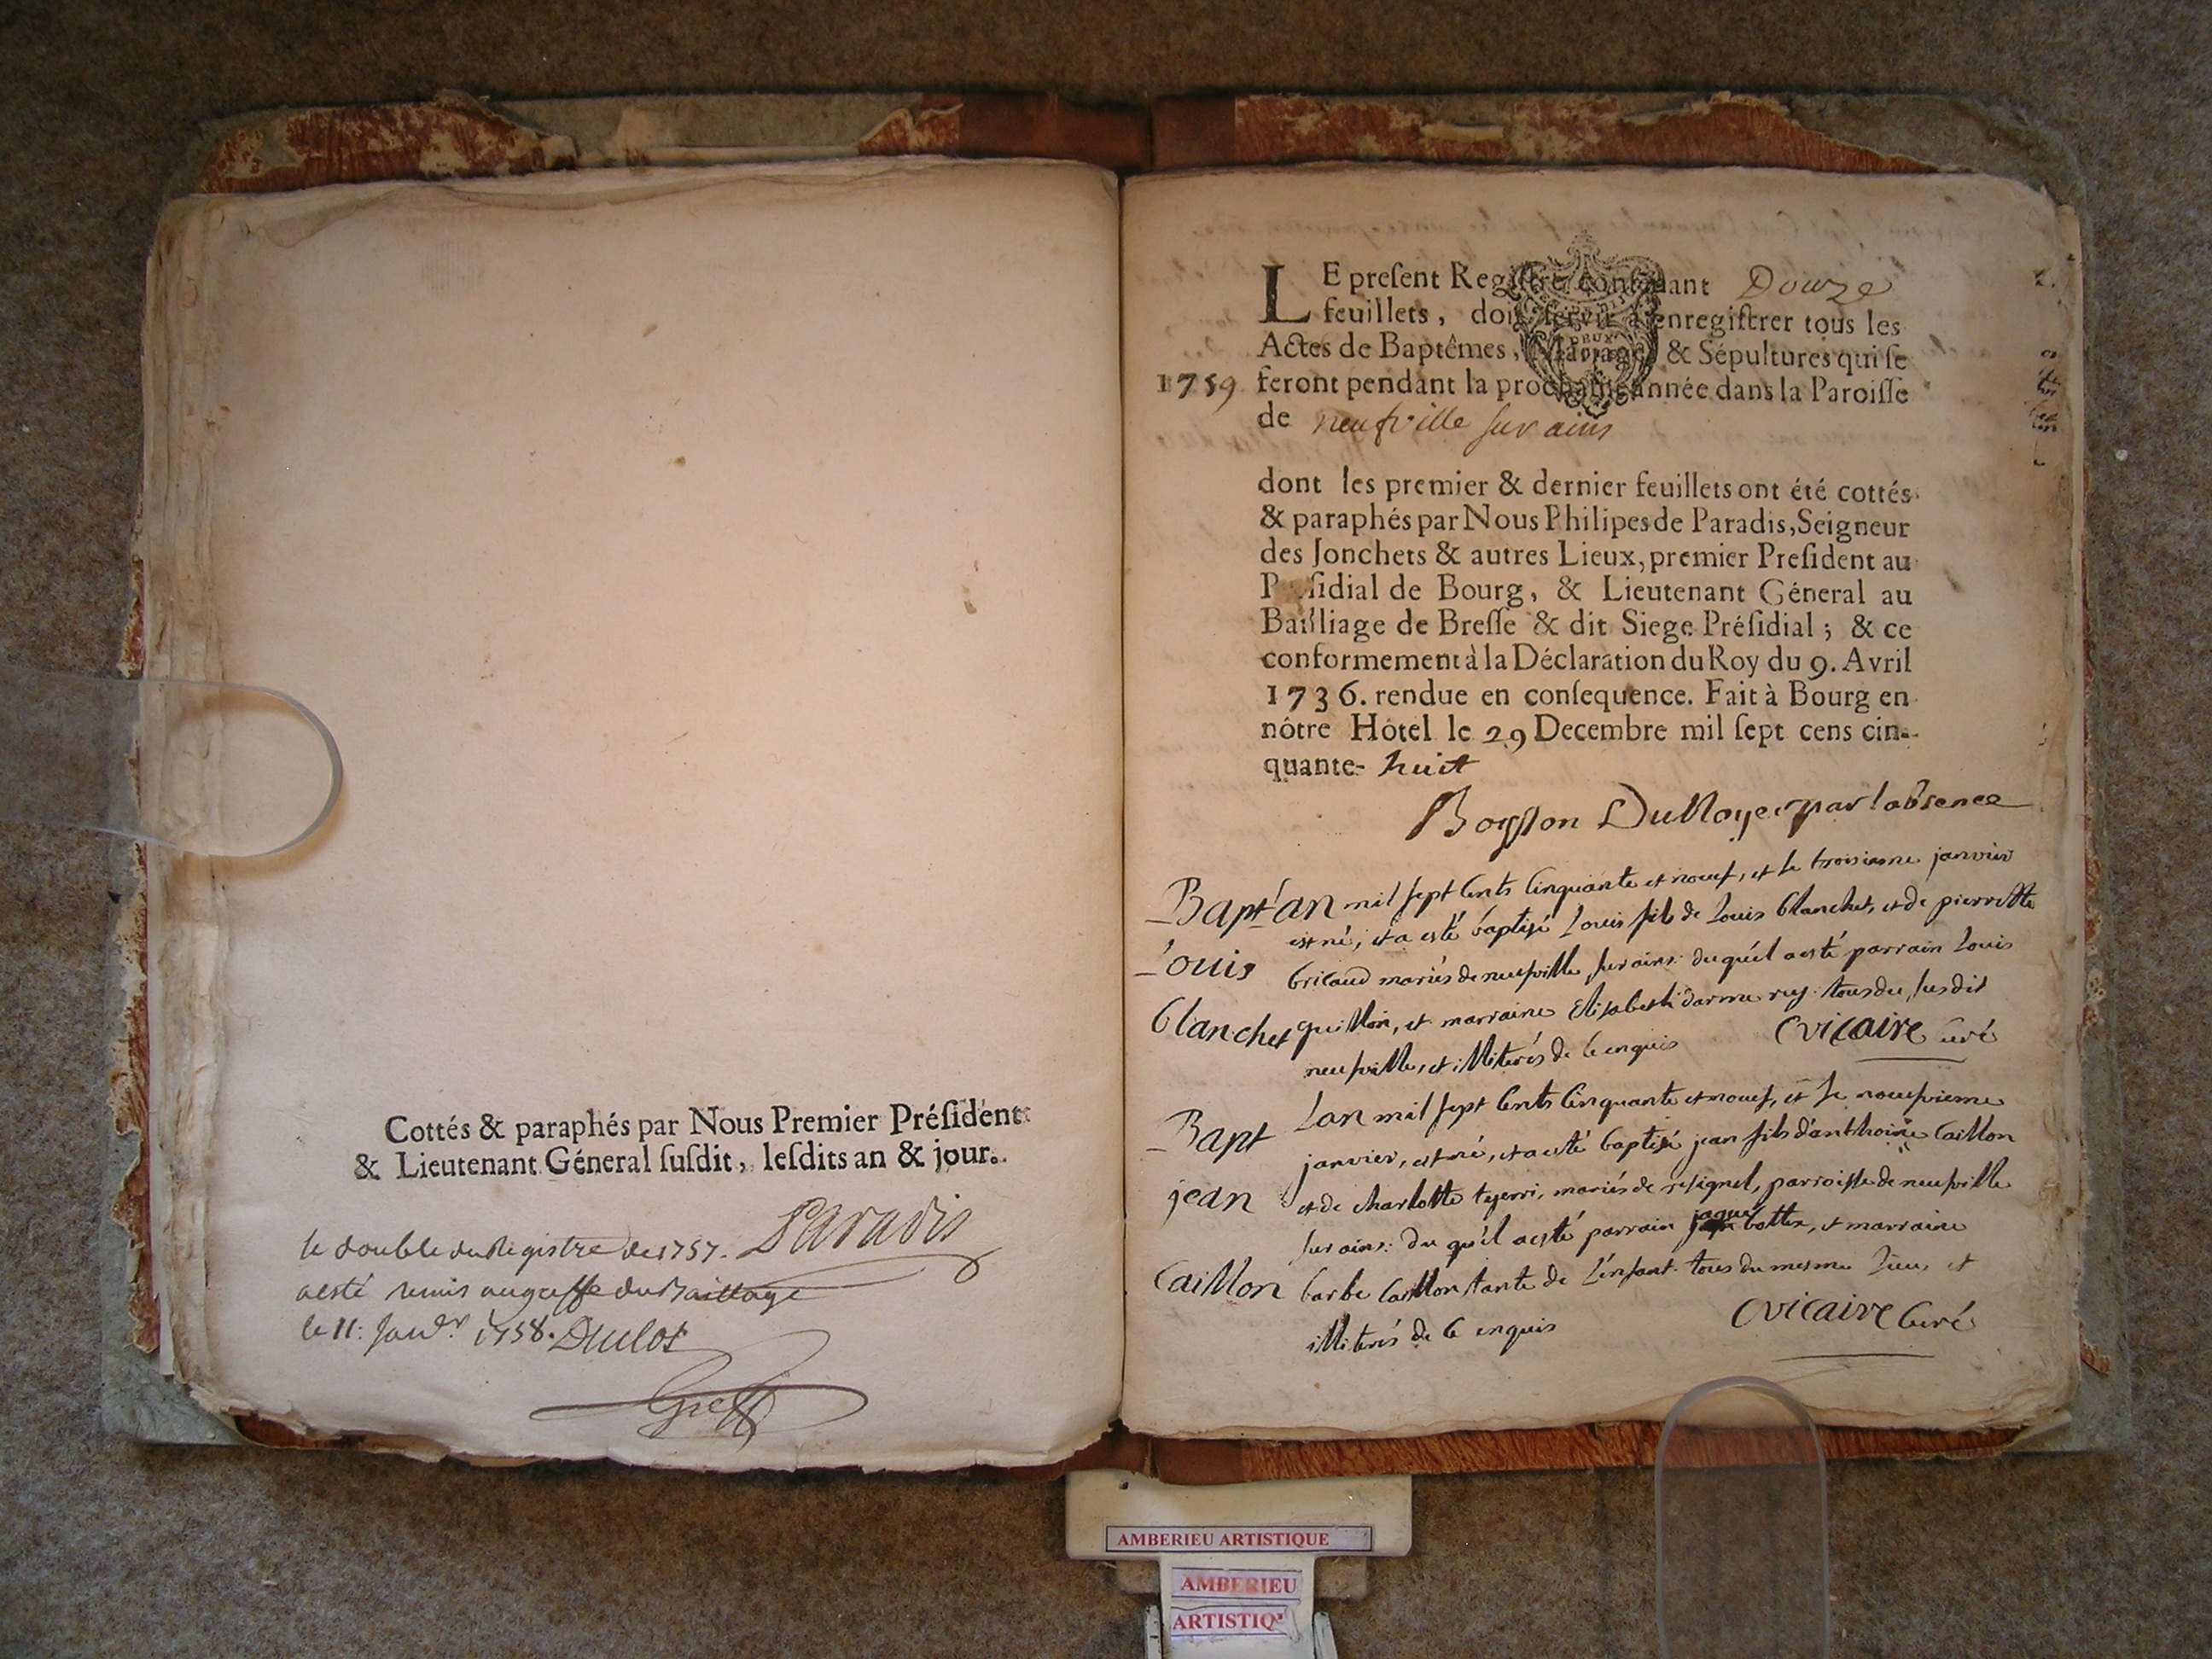 Cottés & paraphés par Nous Premier Préſident
& Lieutenant Géneral ſuſdit, leſdits an & jour.
Paradis
le double du Registre de 1757.
a esté remis au greffe du Bailliage
le 11. Janvr 1758. Dulot
Greff
LE preſent Regiſtre contenant Douze
feuillets, doit ſervir à enregiſtrer tous les
Actes de Baptêmes, Mariages & Sépultures qui ſe
1759 feront pendant la prochaine année dans la Paroiſſe
de neufville sur ains
dont les premier & dernier feuillets ont été cottés
& paraphés par Nous Philipes de Paradis, Seigneur
des Jonchets & autres Lieux, premier Preſident au
Preſidial de Bourg, & Lieutenant Géneral au
Bailliage de Breſſe & dit Siege Préſidial ; & ce
conformement à la Déclaration du Roy du 9. Avril
1736. rendue en conſequence. Fait à Bourg en
nôtre Hôtel le 29 Decembre mil ſept cens cin-
quante- huit
par labsence
Bapt l'an mil sept cents cinquante et neuf, et le troisieme janvier
est né, et a esté baptisé Louis fils de Louis blanchet, et de pierrette
Louis bricaud mariés de neufville sur ains: duquél a esté parrain Louis
blanchet guillon, et marraine Elisabeth tous du susdit
neufville, et illiterés de ce enquis C vicaire curé
Bapt Lan mil sept cents cinquante et neuf, et le neufvieme
janvier, est né, et a esté baptisé jean fils d'anthoine Caillon
jean et de charlotte mariés de resignel, parroisse de neufville
sur ains: du quél a esté parrain jaque bottex, et marraine
Caillon barbe Caillon tante de l'enfant tous du mesme lieu, et
illiterés de ce enquis C vicaire Curé
AMBERIEU ARTISTIQUE
AMBERIEU
ARTISTIQ